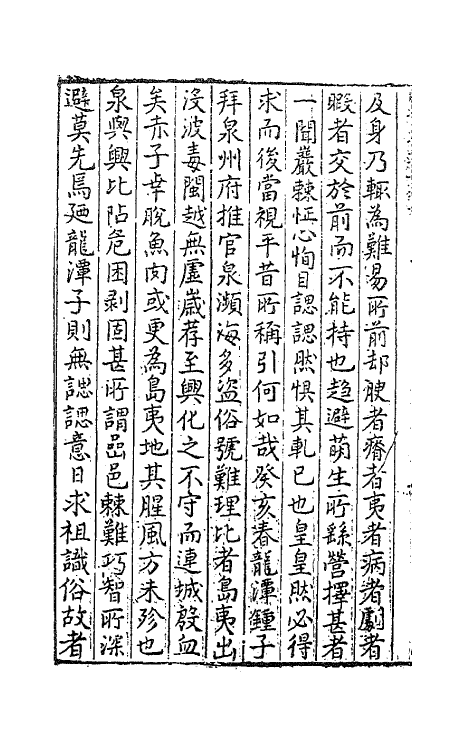 及身乃輙為難易所前却腴者瘠者夷者病者劇者
暇者交於前而不能持也趋避萌生所繇營擇甚者
一聞嚴棘怔心恂目諰諰然惧其軋已也皇皇然必得
求而後當視平昔所稱引何如哉癸亥春龍潭鍾子
拜泉州府推官泉瀕海多盗俗號難理比者島夷出
没波毒閩越無虛嵗荐至興化之不守而連城殷血
矣赤子幸脫魚肉或更為島夷地其腥風方未殄也
泉與興比阽危困剥固甚所謂嵒邑棘難巧智所深
避莫先焉廼龍潭子則無諰諰意日求祖識俗故者